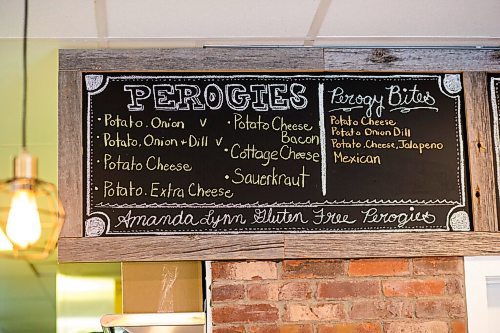 PEROGIES
• Potato. Onion V
• Potato. Onion + Dill V
• Potato Cheese
• Potato. Extra Cheese
• Potato Cheese
Bacon
• Cottage Cheese
• Sauerkraut
Perogy Bites
Potato Cheese
Potato Onion Dill
Potato. Cheese, Jalapeno
Mexican
Amanda Lynn Gluten Free Perogies